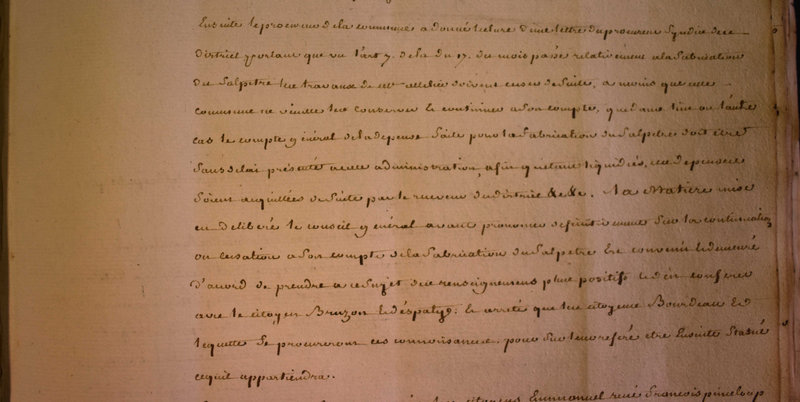 Ensuite le procureur de la commune a donné lecture d'une lettre du procureur Syndic de ce
district portant que vu l'art 7. de la du 17. du mois passé relativement a la fabrication
du Salpetre les travaux de cet attelier doivent cesser de Suite, a moins que cette
commune ne veuille les conserver & continuer a Son compte, que dans l'un ou l'autre
cas le compte général de la depense faite pour la fabrication du Salpetre doit être
Sans delai présenté a cette administration, afin qu'etant liquidés, ces depenses
Soient acquittées de Suite par le receveur du district &c &c. la Matière mise
en deliberé le conseil général avant prononcer definitivement Sur la continuation
ou cessation a Son compte de la fabrication du Salpetre Est convenu & demeuré
d'acord de prendre a ce Sujet des renseignemens plus positifs & d'en conferer
avec le citoyen Bruzon & arrété que les citoyens Bourdeau &
lequette Se procureront ces connoissances pour Sur leur referé etre Ensuite Statué
cequ'il appartiendra.
citoyens Emmanuel rené françois pineloup